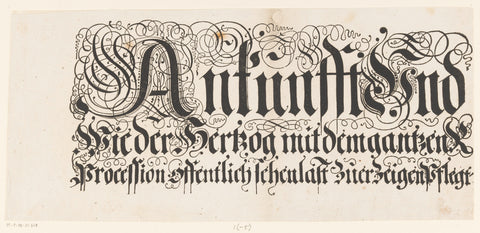 Ankunfft Und
Wie der Hertzog mit dem gantzen R
Procession offentlich sehen last zu erzeigen Pflegt